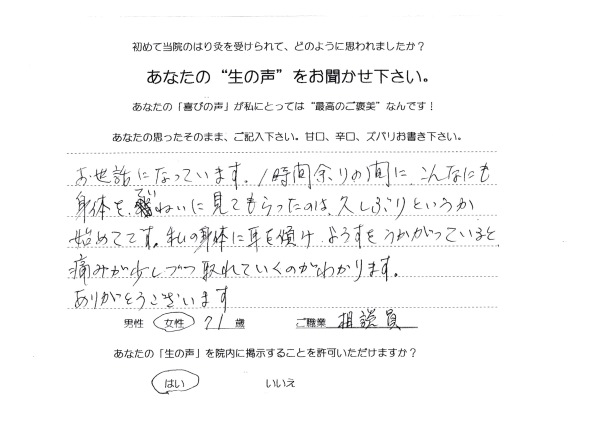 初めて当院のはり灸を受けられて、どのように思われましたか？
あなたの“生の声”をお聞かせ下さい。
あなたの「喜びの声」が私にとっては“最高のご褒美”なんです！
あなたの思ったそのまま、ご記入下さい。甘口、辛口、ズバリお書き下さい。
お世話になっています。1時間余りの間に、こんなにも
身体を、ていねいに見てもらったのは、久しぶりというか
始めてです。私の身体に耳を傾け、ようすをうかがっていると
痛みが少しづつ取れていくのがわかります。
ありがとうございます
男性 女性 71 歳 ご職業 相談員
あなたの「生の声」を院内に掲示することを許可いただけますか？
はい いいえ